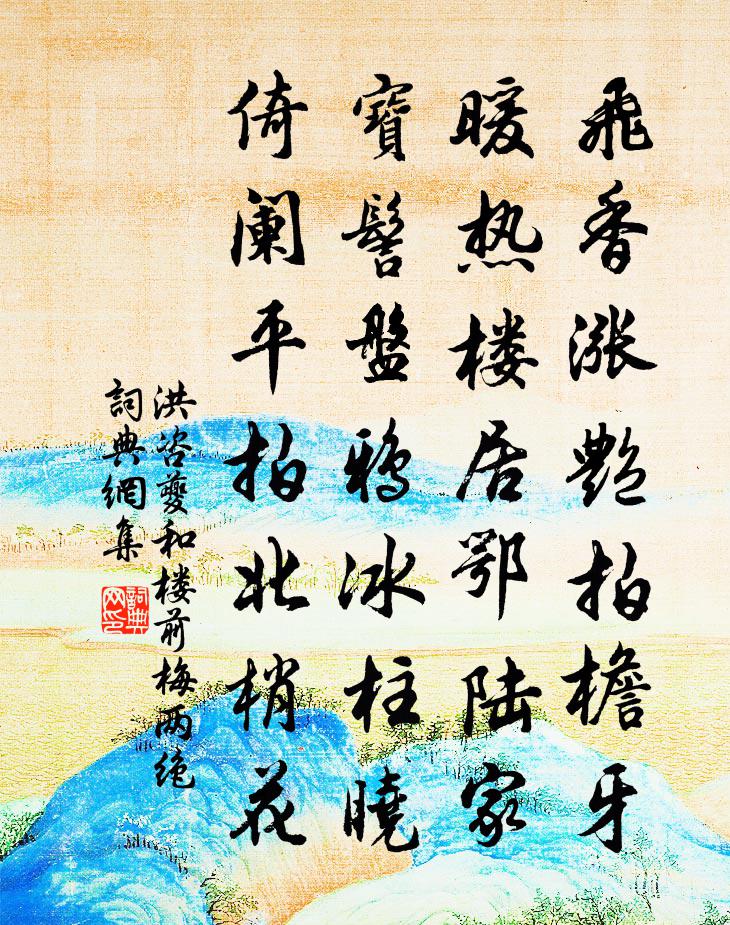 飛香漲艶拍檐牙
暖热楼居鄂陆家
寶髻盤鴉冰柱曉
倚阑平拍北梢花
洪咨夔和楼前梅两绝
詞典網集
詞典網印